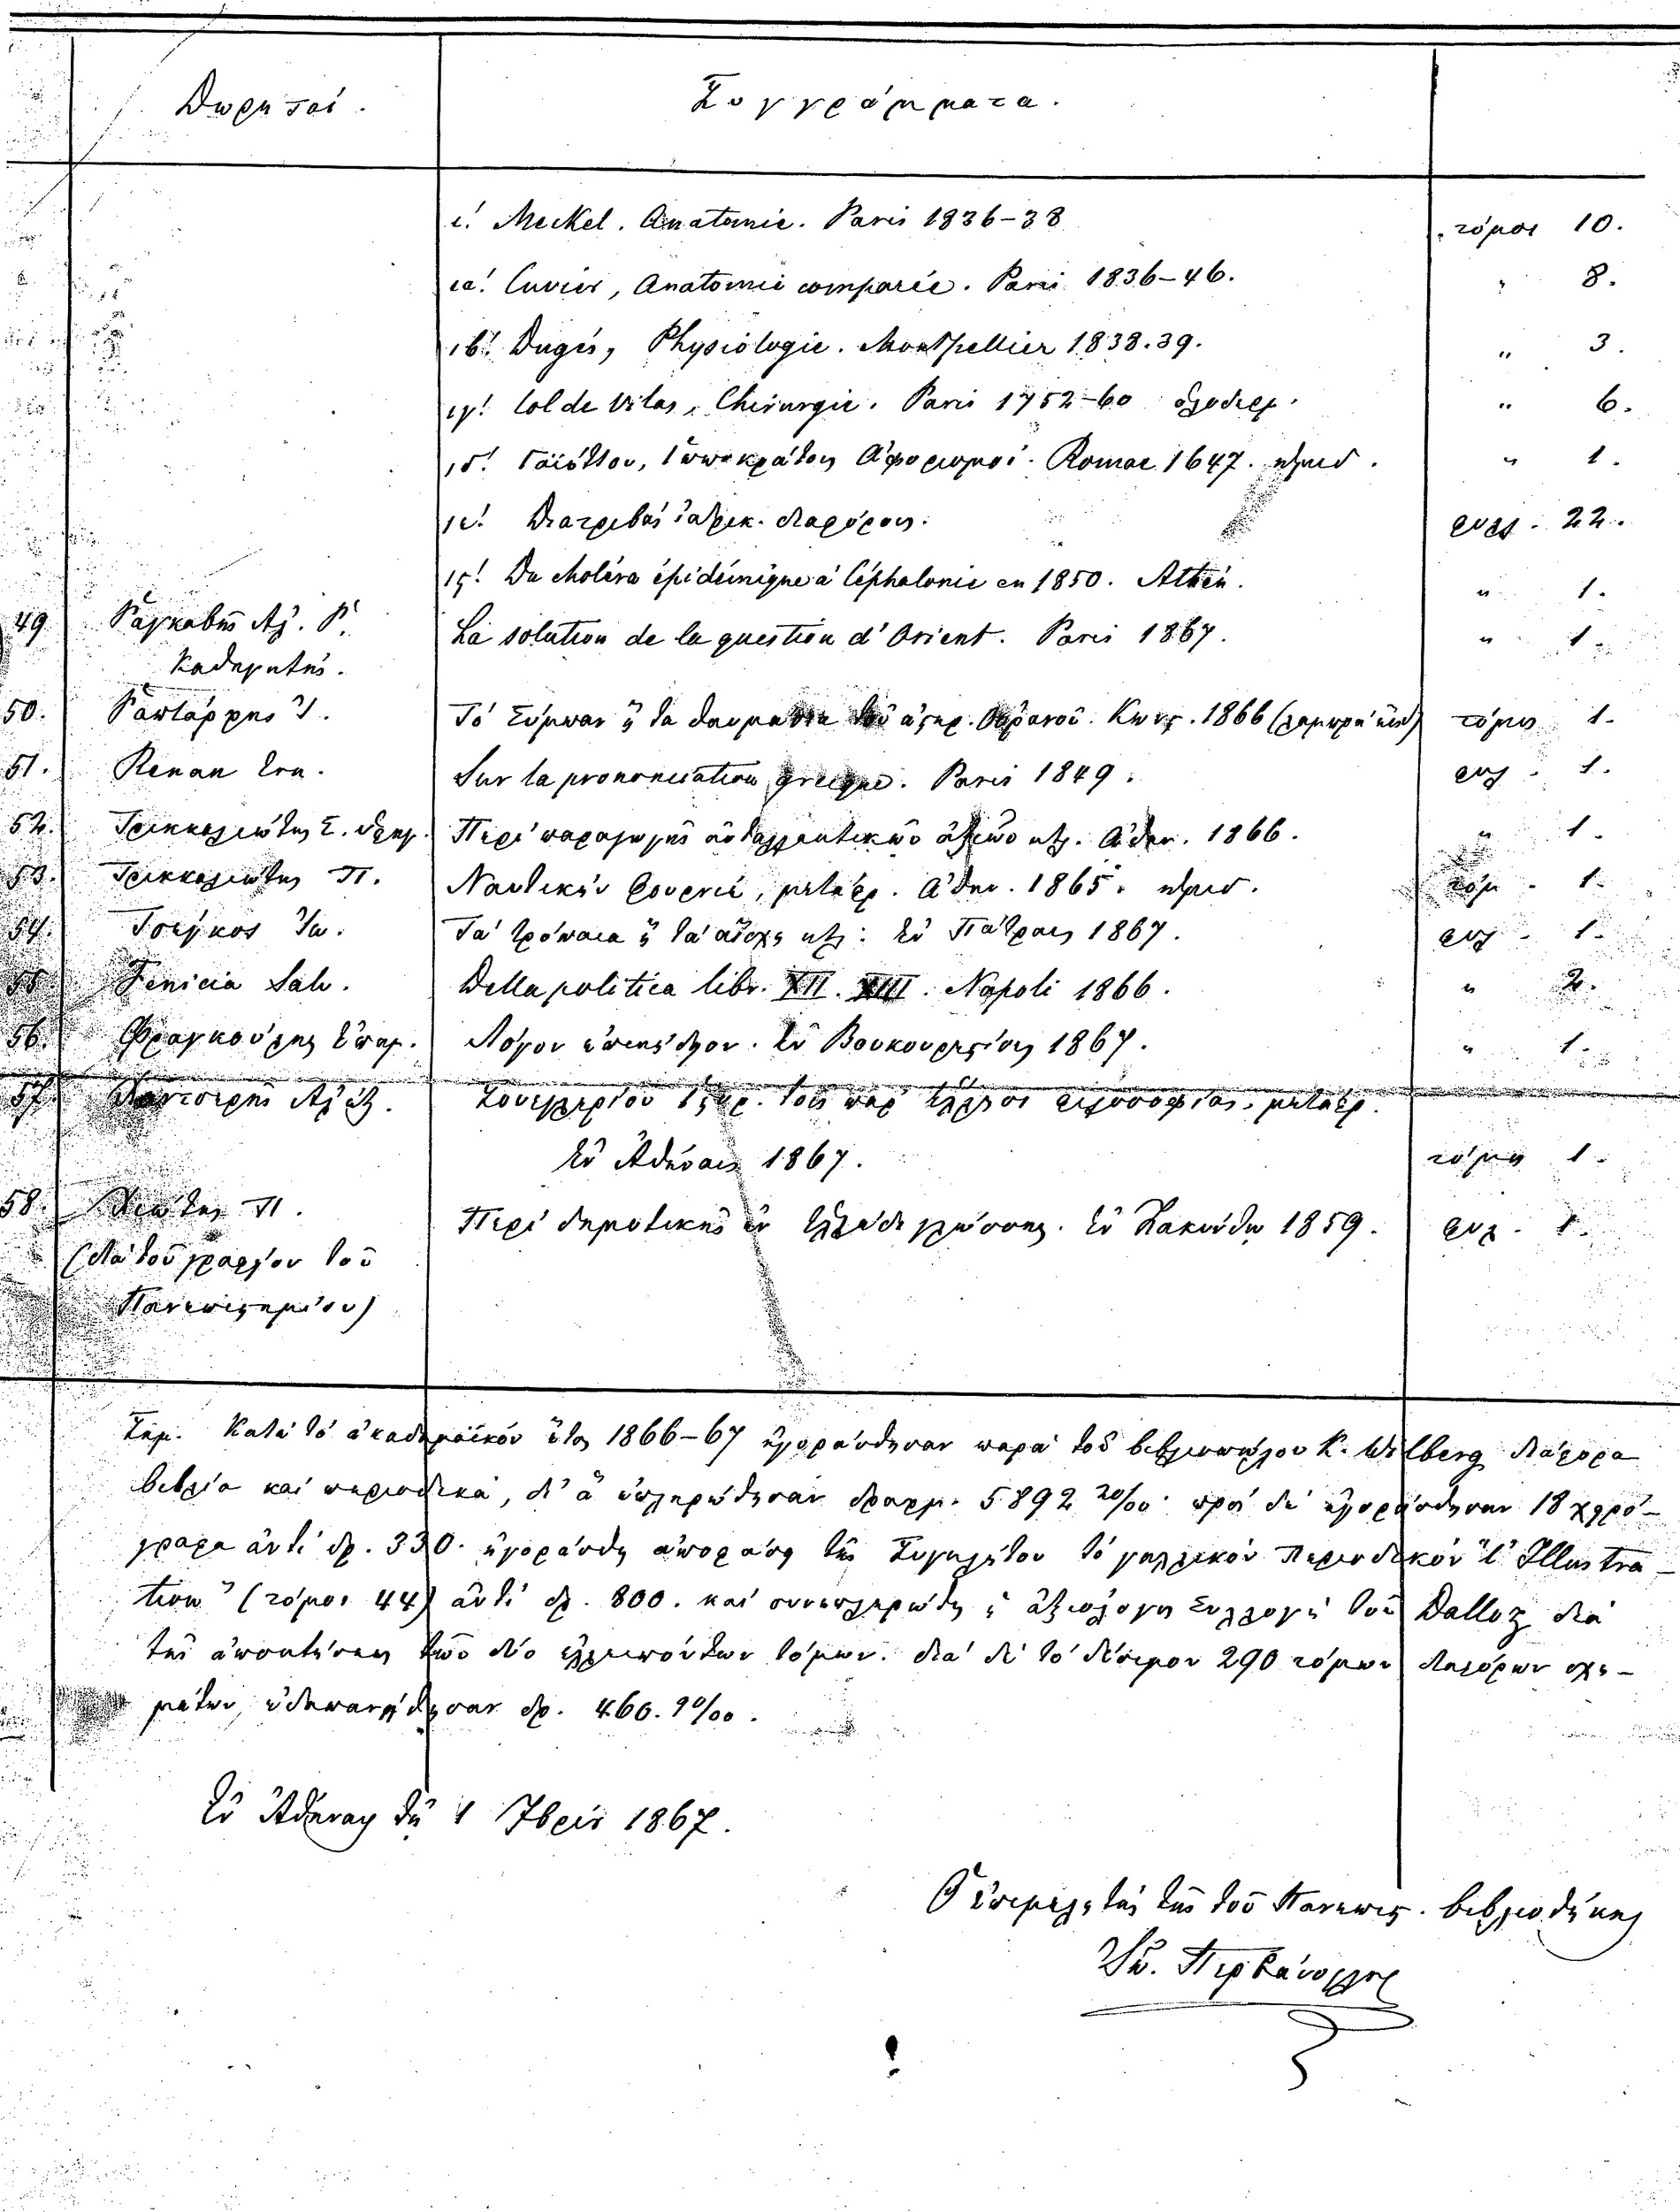 Δωρηταί. Συγγράμματα.
ι! Meckel. Anatomie. Paris 1836-38 τόμοι 10.
ια! Cuvier, Anatomie comparée. Paris 1836-46. " 8.
ιβ! Dugès, Physiologie. Montpellier 1838.39. " 3.
ιγ! Col de Vilars, Chirurgie. Paris 1752-60 " 6.
ιδ! Ἱπποκράτους Ἀφορισμοί. Romae 1647. ἡμιδ. " 1.
ιε! Διατριβαί ἰατρικ. διαφόροι. φυλ. 22.
ιϛ! Du choléra épidémique à Céphalonie en 1850. Athèn. " 1.
49 Ῥαγκαβῆς Ἀλ. Ῥ. La solution de la question d'Orient. Paris 1867. " 1.
καθηγητής.
50. Ῥαπτάρχης Ἰ. Τό Σύμπαν ἤ τα θαυμάσια τοῦ ἀστερ. Οὐρανοῦ. Κωνς. 1866 τόμος 1.
51. Renan Ern. Sur la prononciation grecque. Paris 1849. φυλ. 1.
52. Τρικκαλιώτης Σ. Περί παραγωγῆς ἀνταλλακτικῶν ἀξιῶν κτλ. Ἀθην. 1866. " 1.
53. Τρικκαλιώτης Π. Ναυτικόν μετάφρ. Ἀθην. 1865. ἡμιδ. τόμ. 1.
54. Τσίγκος Ἰω. Τά τρόπαια ἤ τά αἴσχη κτλ. Ἐν Πάτραις 1867. φυλ. 1.
55 Fenicia Salv. Della politica libr. XII. XIII. Napoli 1866. " 2.
56. Φραγκούδης Ἐπαμ. Λόγον ἐπικήδειον. Ἐν Βουκουρεστίοις 1867. " 1.
57. Ἀλέξ. Σουεγλερίου Ἱστορ. τῆς παρ' Ἕλλησι φιλοσοφίας, μετάφρ.
Ἐν Ἀθήναις 1867. τόμος 1.
58. Χιώτης Π. Περί δημοτικῆς ἐν Ἑλλάδι γλώσσης. Ἐν Ζακύνθῳ 1859. φυλ. 1.
(διά τοῦ γραφείου τοῦ
Πανεπιστημίου)
Σημ. Κατά τό ἀκαδημαϊκόν ἔτος 1866-67 ἠγοράσθησαν παρά τοῦ βιβλιοπώλου Κ. Wilberg διάφορα
βιβλία καί περιοδικά, δι' ἅ ἐπληρώθησαν δραχμ. 5892 20/00. πρός δέ ἠγοράσθησαν 18 χειρό-
γραφα ἀντί δρ. 330. ἠγοράσθη ἀποφάσει τῆς Συγκλήτου τό γαλλικόν περιοδικόν "l'Illustra-
tion" (τόμοι 44) ἀντί δρ. 800. καί συνεπληρώθη ἡ ἀξιόλογος Συλλογή τοῦ Dalloz διά
τῆς ἀποκτήσεως τῶν δύο ἐλλειπόντων τόμων. διά δέ τό δέσιμον 290 τόμων διαφόρων σχη-
μάτων ἐδαπανήθησαν δρ. 466. 90/00.
Ἐν Ἀθήναις τῇ 1 7βρίου 1867.
Ὁ ἐπιμελητής τῆς τοῦ Πανεπις. βιβλιοθήκης
Ἰω. Περβάνογλους